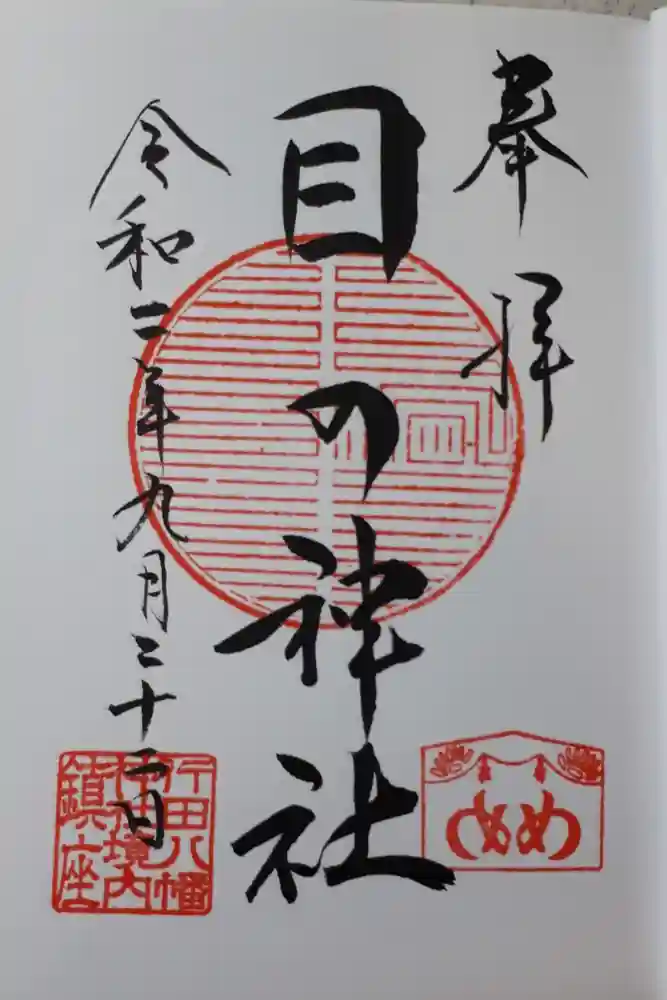 奉拝
目の神社
令和二年九月二十二日
行田八幡
神社境内
鎮座
めめ